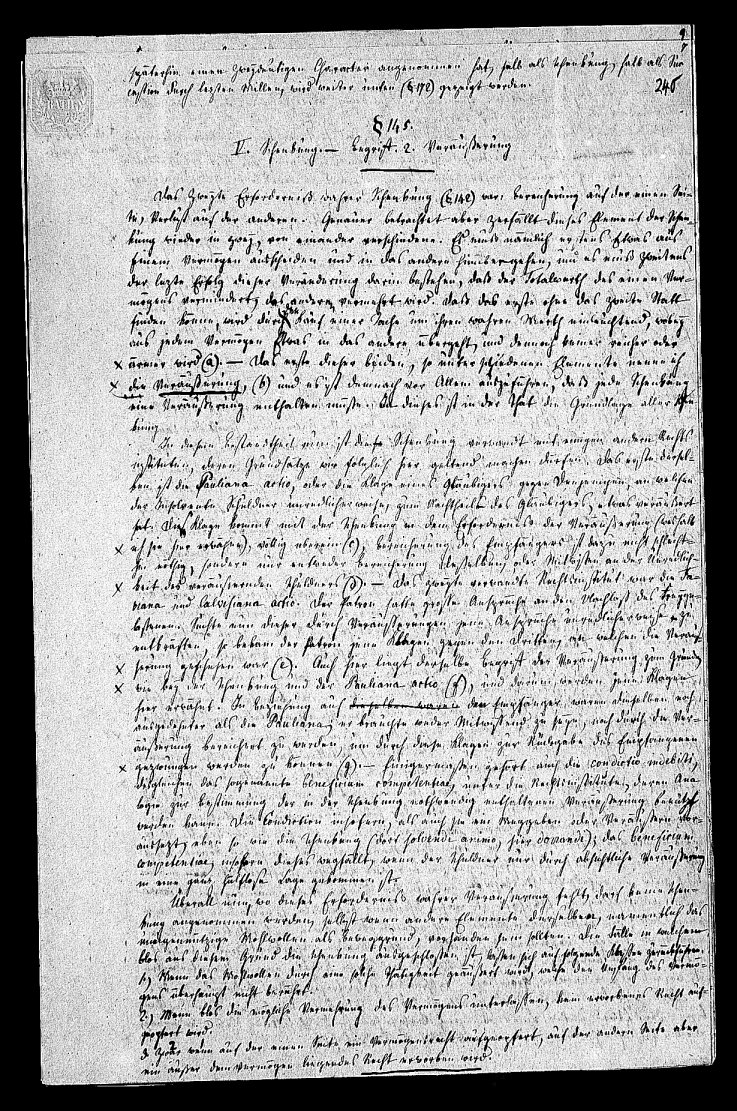 9.
späterhin einen zweydeutigen Character angenommen hat, halb als Schenkung, halb als Suc
cession durch letzten Willen, wird weiter unten (§ 172) gezeigt werden.
246
§ 145.
IV. Schenkung. — Begriff. 2. Veräußerung
Das zweyte Erforderniß wahrer Schenkung (§ 142) war: Bereicherung auf der einen Sei-
te, Verlust auf der anderen. Genauer betrachtet aber zerfällt dieses Element der Schen-
kung wieder in zwey, von einander verschiedene. Es muß nämlich erstens Etwas aus
Einem Vermögen ausscheiden und in das andere hinübergehen, und es muß zweitens
der letzte Erfolg dieser Veränderung darin bestehen, daß der Totalwerth des einen Ver-
mögens vermindert, des andern vermehrt wird. Daß das erste ohne das zweite Statt
finden könne, wird durch den Kauf einer Sache um ihren wahren Werth einleuchtend, wobey
aus jedem Vermögen Etwas in das andere übergeht, und dennoch keines reicher oder
ärmer wird (a). — Das erste dieser beiden, so unterschiedenen Elemente nenne ich
die Veräußerung, (b) und es ist demnach vor Allem auszuführen, daß jede Schenkung
eine Veräußerung enthalten müsse. Denn dieses ist in der That die Grundlage aller Schen
kung.
In diesem Bestandtheil nun ist die Schenkung verwandt mit einigen andern Rechts
instituten, deren Grundsätze wir folglich hier geltend machen dürfen. Das erste dersel-
ben ist die Pauliana actio, oder die Klage eines Gläubigers gegen Denjenigen, an welchen
der insolvente Schuldner unredlicherweise, zum Nachtheil des Gläubigers, etwas veräußert
hat. Diese Klage kommt mit der Schenkung in dem Erforderniß der Veräußerung (weshalb
ich sie hier erwähne), völlig überein (c), Bereicherung des Empfängers ist dazu nicht schlecht-
hin nöthig, sondern nur entweder Bereicherung desselben, oder Mitwissen an der Unredlich-
keit des veräußernden Schuldners (d). — Das zweyte verwandte Rechtsinstitut war die Fa-
viana und Calvisiana actio. Der Patron hatte große Ansprüche an den Nachlaß des Freyge-
lassenen. Suchte nun dieser durch Veräußerungen jene Ansprüche unredlicherweise zu
entkräften, so bekam der Patron jene Klagen gegen den Dritten, an welchen die Veräu-
ßerung geschehen war (e). Auch hier liegt derselbe Begriff der Veräußerung zum Grunde,
wie bey der Schenkung und der Pauliana actio (f), und darum werden jene Klagen
hier erwähnt. In Beziehung auf den Empfänger, waren dieselben noch
ausgedehnter als die Pauliana; er brauchte weder Mitwissend zu seyn, noch durch die Ver-
äußerung bereichert zu werden, um durch diese Klagen zur Rückgabe des Empfangenen
gezwungen werden zu können (g). — Einigermaßen gehört auch die condictio indebiti,
desgleichen das sogenannte beneficium competentiae, unter die Rechtsinstitute, deren Ana
logie zur Bestimmung der in der Schenkung nothwendig enthaltenen Veräußerung benutzt
werden kann. Die Condiction insofern, als auch sie ein Weggeben oder Veräußern vor-
aussetzt, eben so wie die Schenkung (dort solvendi animo, hier donandi); das beneficium
competentiae, insofern dieses wegfällt, wenn der Schuldner nur durch absichtliche Veräußerung
in eine ganz hülflose Lage gekommen ist.
Überall nun, wo dieses Erforderniß wahrer Veräußerung fehlt, darf keine Schen-
kung angenommen werden, selbst wenn andere Elemente derselben, namentlich das
uneigennützige Wohlwollen als Beweggrund, vorhanden seyn sollten. Die Fälle in welchen
blos aus diesem Grund die Schenkung ausgeschlossen ist, lassen sich auf folgende Klassen zurückführen.
1) Wenn das Wohlwollen durch eine solche Thätigkeit geäußert wird, welche den Umfang des Vermö-
gens überhaupt nicht berührt.
2.) Wenn blos die mögliche Vermehrung des Vermögens unterlassen, kein erworbenes Recht auf-
geopfert wird.
3. Zwar wenn auf der einen Seite ein Vermögensrecht aufgeopfert, auf der andern Seite aber
ein außer dem Vermögen liegendes Recht erworben wird.